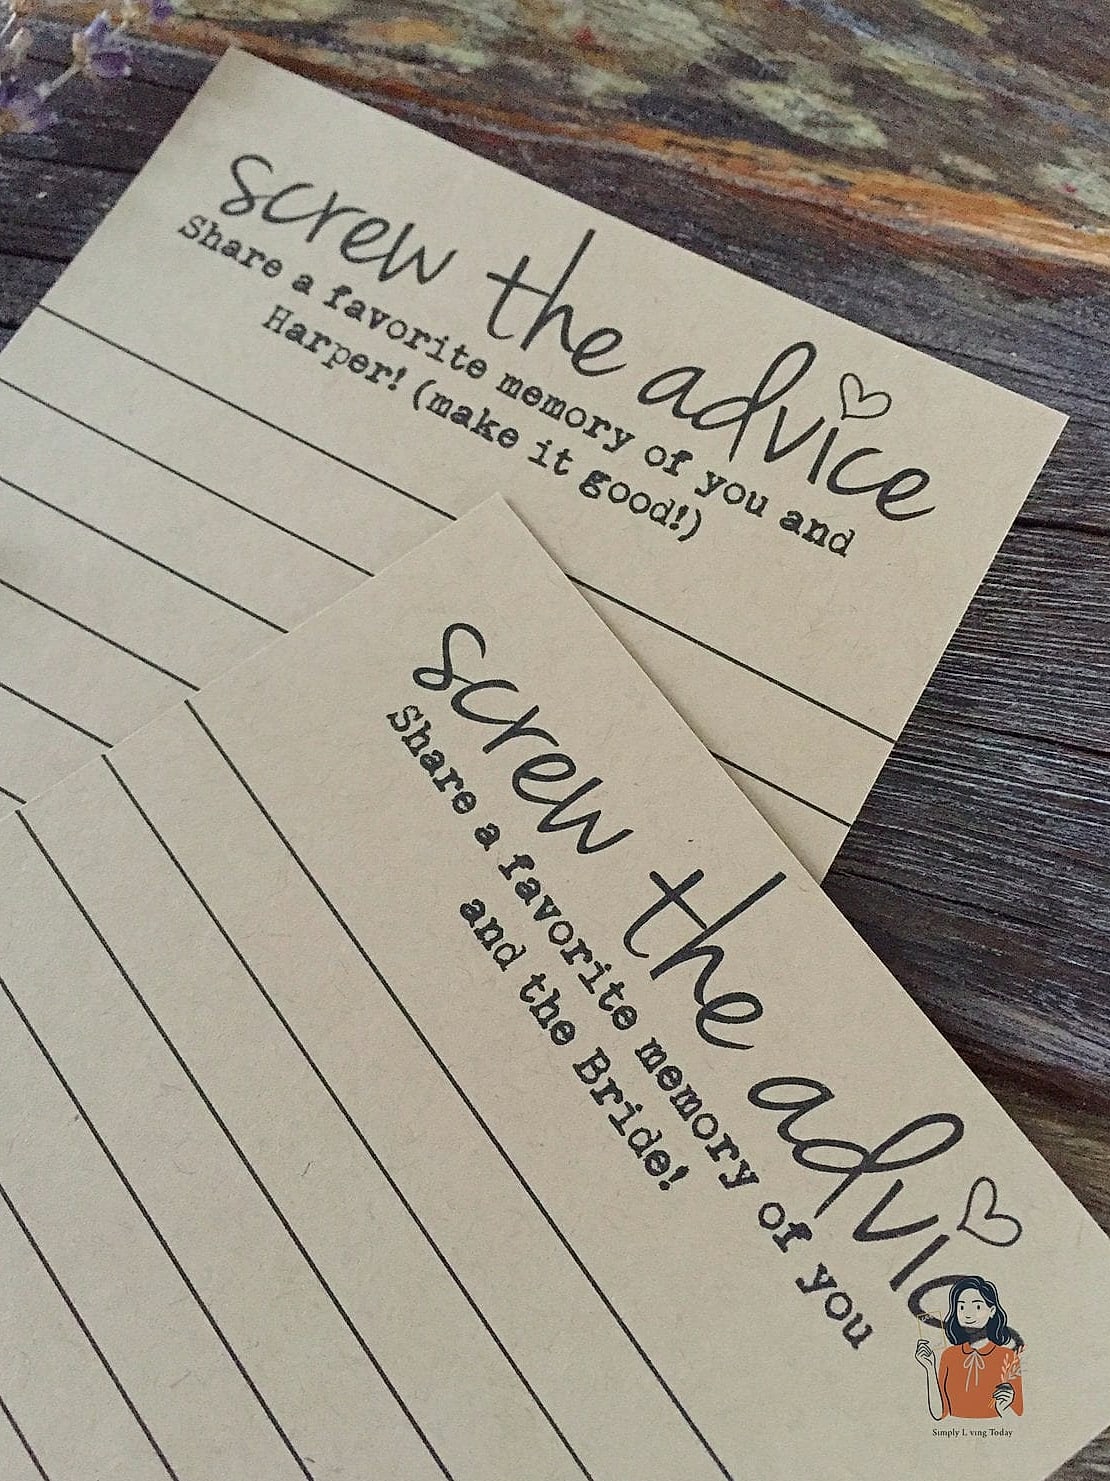 screw the advice
Share a favorite memory of you and
Harper! (make it good!)
screw the advice
Share a favorite memory of you
and the Bride!
Simply L ving Today